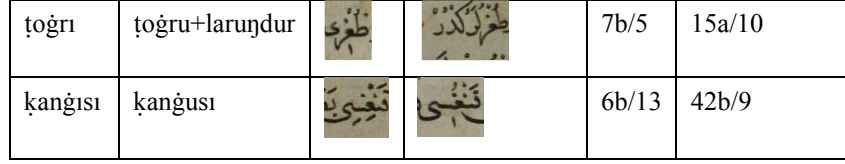 ṭoġrı ṭoġru+laruŋdur طُغْرِى طُغْرُلَرُكْدُرْ 7b/5 15a/10
ḳanġısı ḳanġusı قَنْغِسِى قَنْغُسِى 6b/13 42b/9